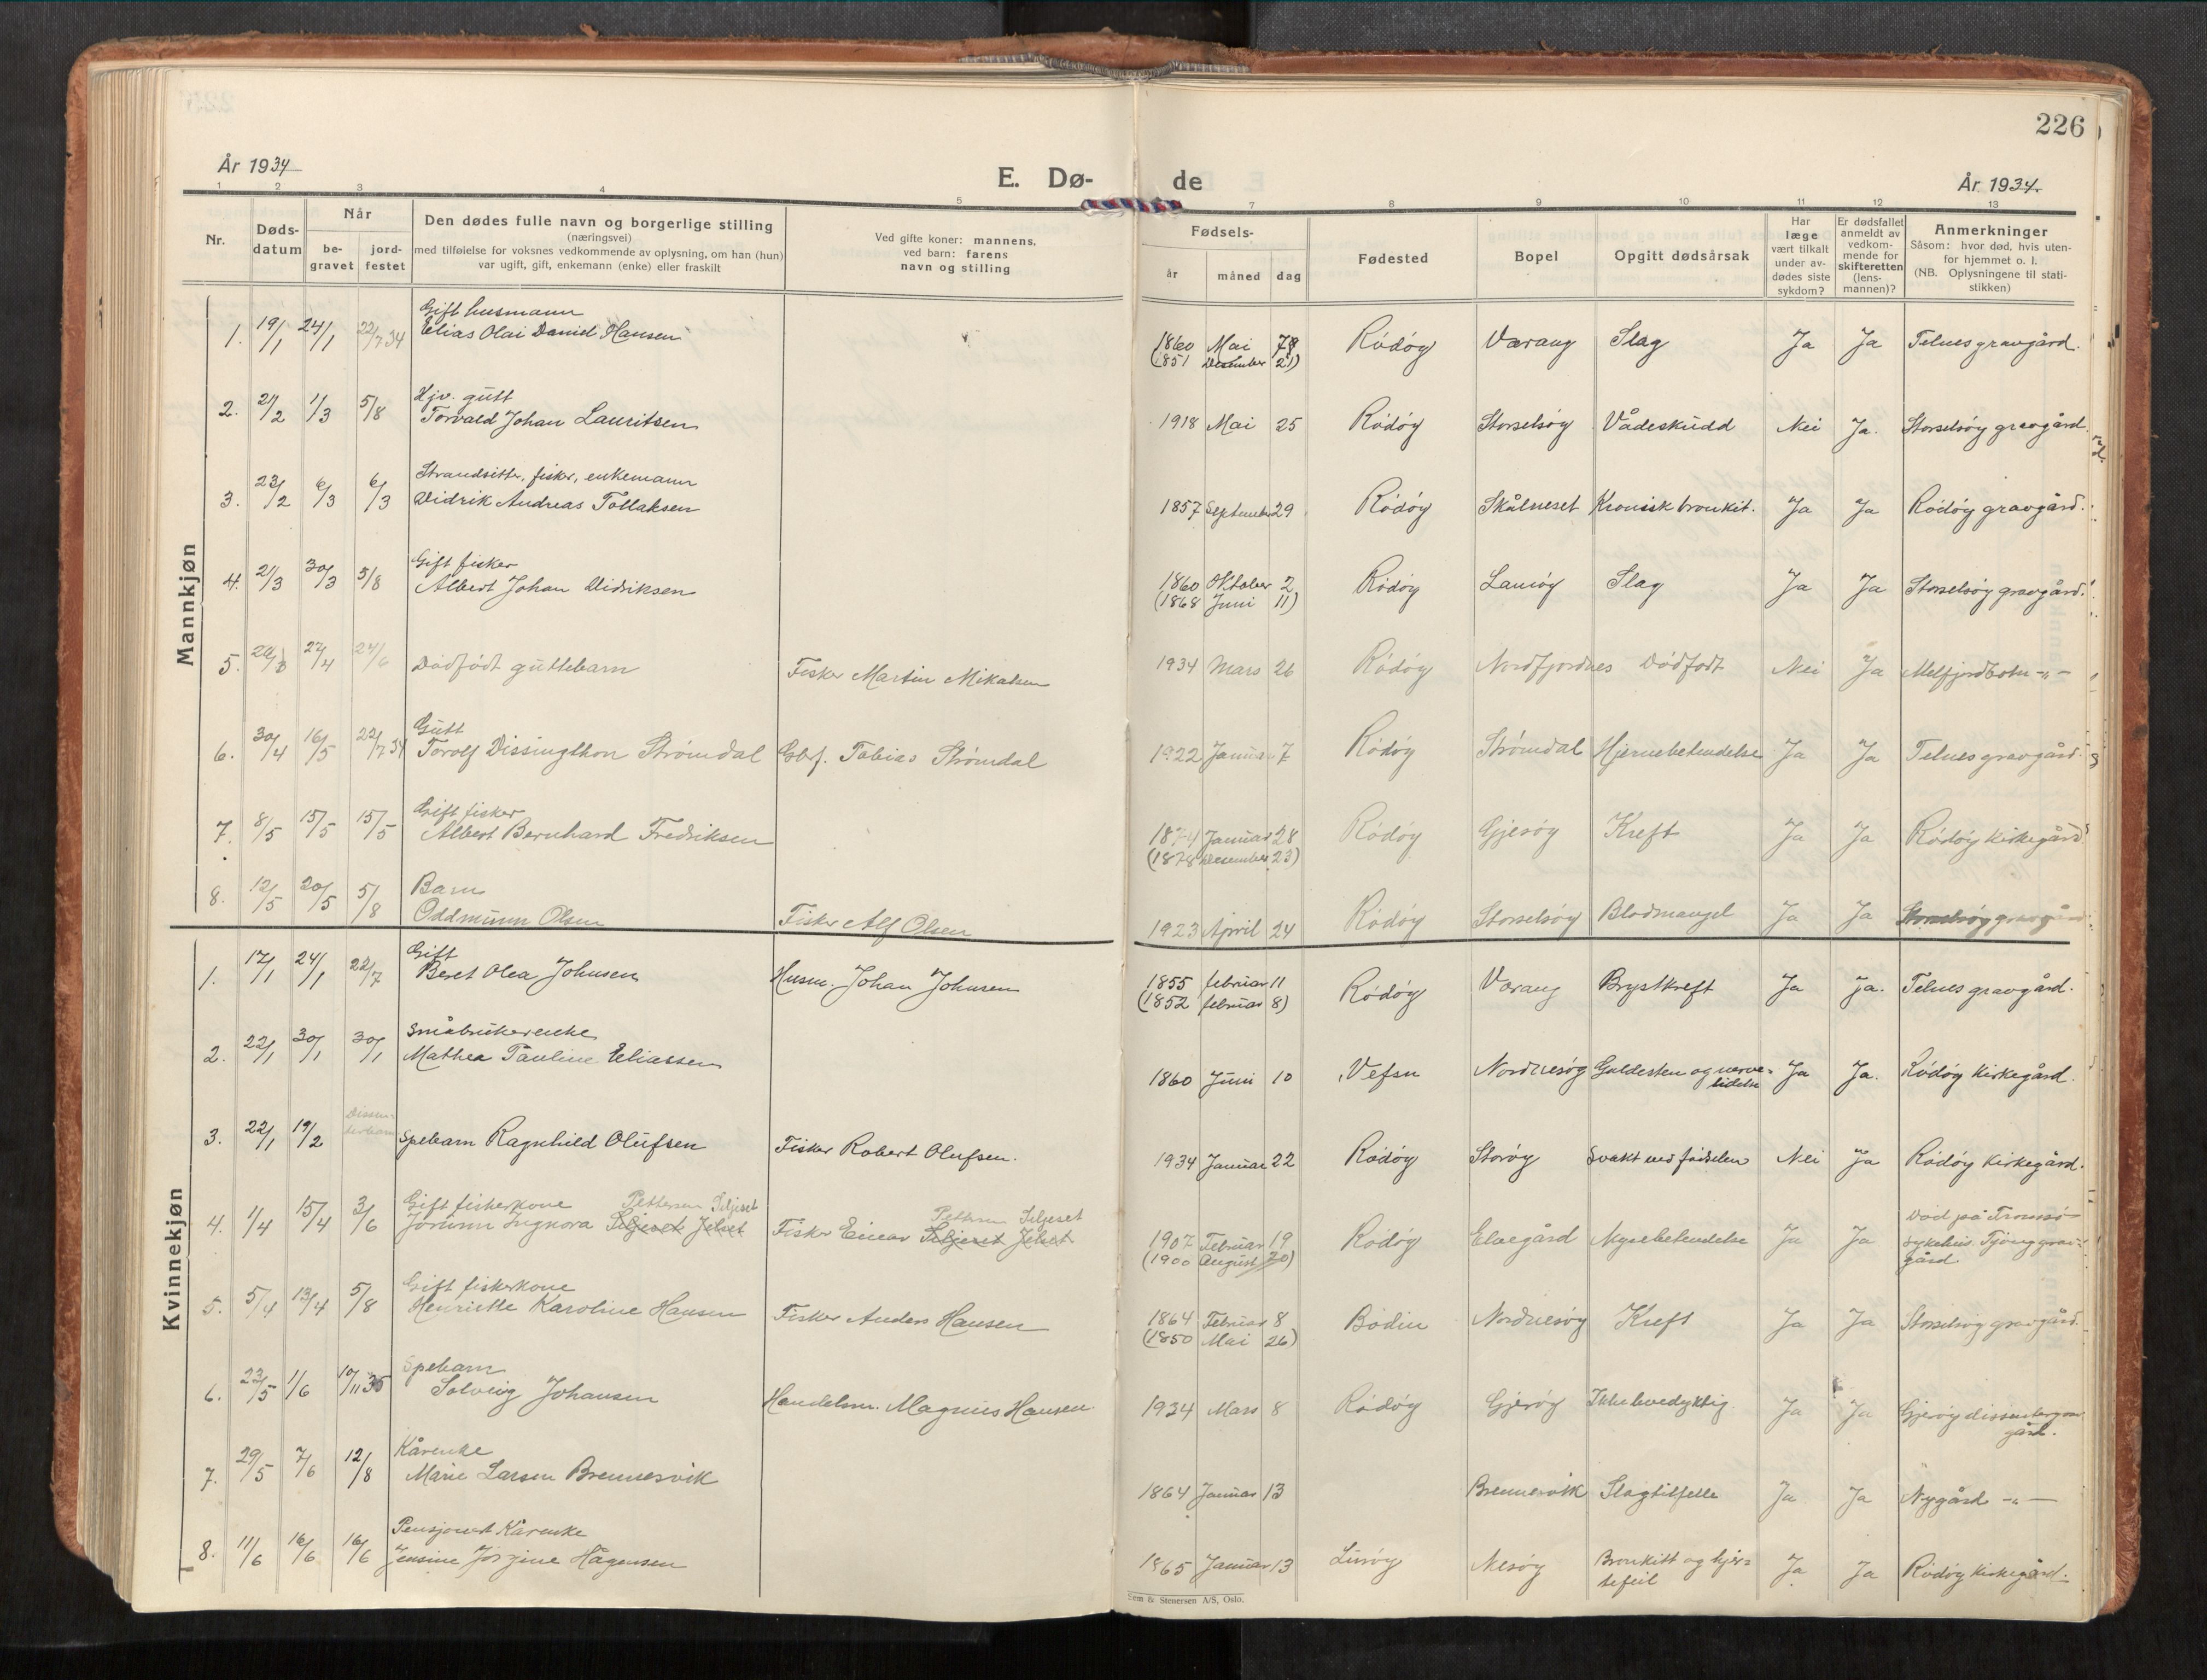 226
År 1934
E. Dø-
de
År 1934.
1 2 3 4 5 7 8 9 10 11 12 13
Nr.
Døds-
datum
Når
be-
gravet
jord-
festet
Den dødes fulle navn og borgerlige stilling
(næringsvei)
med tilføielse for voksnes vedkommende av oplysning, om han (hun)
var ugift, gift, enkemann (enke) eller fraskilt
Ved gifte koner: mannens.
ved barn: farens
navn og stilling
Fødsels-
år
måned
dag
Fødested
Bopel
Opgitt dødsårsak
Har
læge
vært tilkalt
under av-
dødes siste
sykdom?
Er dødsfallet
anmeldt av
vedkom-
mende for
skifteretten
(lens-
mannen)?
Anmerkninger
Såsom: hvor død, hvis uten-
for hjemmet o. l.
(NB. Oplysningene til stati-
stikken)
Mannkjøn
Gift husmann
1. 19/1 24/1 22/7 34 Elias Olai Daniel Hansen 1860 Mai Rödöy Værang Slag Ja Ja Telnes gravgård.
(1851 Desember 21)
Hjv. gutt
2. 21/2 1/3 5/8 Torvald Johan Lauritsen 1918 Mai 25 Rödöy Storselsöy Vådeskudd Nei Ja. Storselsöy gravgård.
Strandsitter, fisker, enkemann
3. 23/2 6/3 6/3 Didrik Andreas Tollaksen 1857 September 29 Rödöy Skålneset Kronisk bronkit. Ja Ja Rödöy gravgård.
Gift fisker
4. 21/3 30/3 5/8 Albert Johan Didriksen 1860 Oktober 2 Rödöy Slag Ja Ja Storselsöy gravgård.
(1868 Juni 11)
5. 27/4 24/6 Dödfödt guttebarn Fisker Martin Mikalsen 1934 Mars 26 Rödöy Nordfjordnes Dödfödt Nei Ja Melfjordbotn -"-
Gutt
6. 30/4 16/5 22/7 34 Torolf Dissingthon Strömdal Tobias Strömdal 1922 Januar 7 Rödöy Strömdal Hjernebetendelse Ja Ja Telnes gravgård.
Gift fisker
7. 8/5 15/5 15/5 Albert Bernhard Fredriksen 1874 Januar 28 Rödöy Gjesöy Kreft Ja Ja Rödöy kirkegård
(1878 Desember 23)
Barn
8. 12/5 20/5 5/8 Oddmunn Olsen Fisker Alf Olsen 1923 April 24 Rödöy Storselsöy Blodmangel Ja Ja Storselsöy gravgård
Kvinnekjøn
Gift
1. 17/1 24/1 22/7 Beret Olea Johnsen Husm. Johan Johnsen 1855 februar 11 Rödöy Værang Brystkreft Ja Ja. Telnes gravgård.
(1852 februar 8)
Småbrukerenke
2. 22/1 30/1 30/1 Mathea Pauline Eliassen 1860 Juni 10 Vefsn Nordnesöy Galdesten og nerve-
lidelse Ja Ja. Rödöy kirkegård.
Dissen-
terbarn
3. 22/1 19/2 Spebarn Ragnhild Olufsen Fisker Robert Olufsen. 1934 Januar 22 Rödöy Storöy Svakt ved födselen Nei Ja Rödöy kirkegård.
Gift fiskerkone Pettersen Siljeset
4. 1/4 15/4 3/6 Jorunn Ingnora Siljeset Jelset Fisker Einar Siljeset Jelset
Pettersen Siljeset
1907 Februar 19 Rödöy Elvegård Nyrebetendelse Ja Ja Död på Tromsö
sykehus. Tjöng grav-
gård.
(1900 August 20)
Gift fiskerkone
5. 5/4 13/4 5/8 Henriette Karoline Hansen Fisker Anders Hansen 1864 Februar 8 Bodin Nordnesöy Kreft Ja Ja Storselsöy gravgård.
(1850 Mai 26)
Spebarn
6. 23/5 1/6 17/11 35 Solveig Johansen Handelsm. Magnus Hansen 1934 Mars 8 Rödöy Gjeröy Ikke levedyktig. Ja Ja Gjeröy dissentergrav
gård.
Kårenke
7. 29/5 7/6 12/8 Marie Larsen Brennesvik 1864 Januar 13 Brennesvik Slagtilfelle Ja Ja Nygård -"-
Pensjonert Kårenke
8. 11/6 16/6 16/6 Jensine Jörgine Hågensen 1865 Januar 13 Luröy Nesöy Bronkitt og hjer-
tefeil Ja Ja Rödöy kirkegård.
Sem & Stenersen A/S, Oslo.